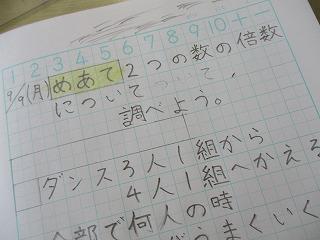 1 2 3 4 5 6 7 8 9 10 + -
9/9(月) めあて 2つの数の倍数
について
調べよう。
ダンス 3人1組から
4人1組へかえる
全部で何人の時
うまくいく